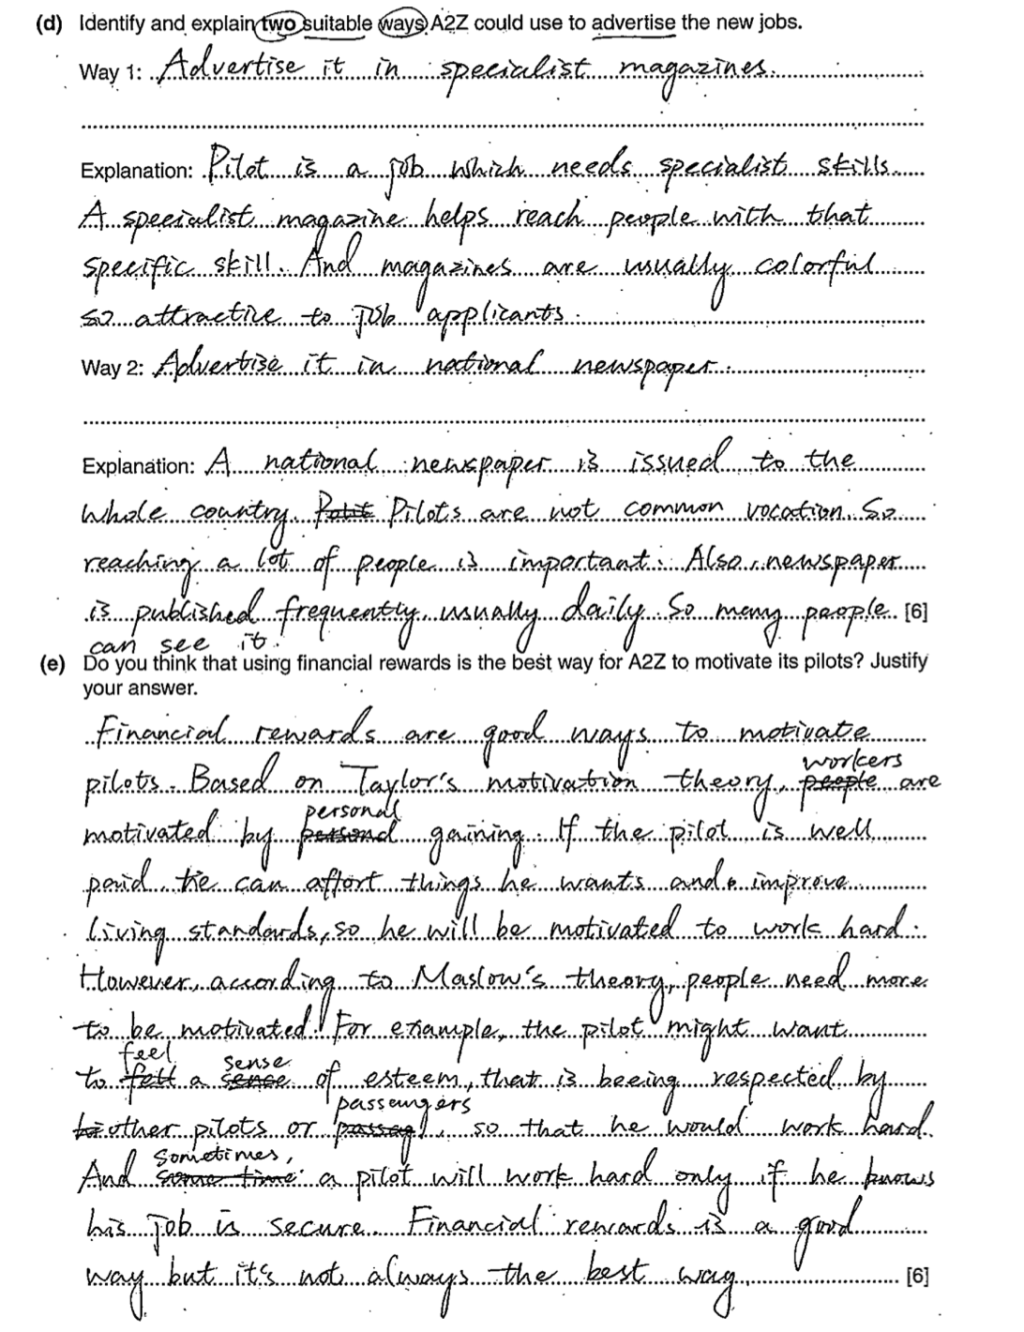 (d) Identify and explain two suitable ways A2Z could use to advertise the new jobs.
Way 1: Advertise it in specialist magazines.
Explanation: Pilot is a job which needs specialist skills.
A specialist magazine helps reach people with that
specific skill. And magazines are usually colorful
so attractive to job applicants.
Way 2: Advertise it in national newspaper.
Explanation: A national newspaper is issued to the
whole country. Pilots are not common vocation. So
reaching a lot of people is important. Also, newspaper
is published frequently, usually daily. So many people [6]
can see it.
(e) Do you think that using financial rewards is the best way for A2Z to motivate its pilots? Justify
your answer.
Financial rewards are good ways to motivate
workers
pilots. Based on Taylor's motivation theory, people are
personal
motivated by gaining. If the pilot is well
paid, he can affort things he wants and improve
living standards, so he will be motivated to work hard.
However, according to Maslow's theory, people need more
to be motivated. For example, the pilot might want
feel sense
to felt a sence of esteem, that is beeing respected by
passengers
other pilots or passag, so that he would work hard.
Sometimes,
And some time a pilot will work hard only if he knows
his job is secure. Financial rewards is a good
way but it's not always the best way. [6]